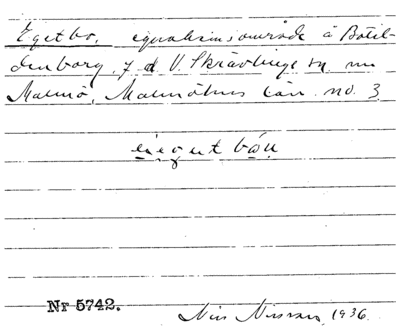 Eget bo, egnahemsområde å Bötil-
denborg, f d V. Skrävlinge sn nu
Malmö, Malmöhus län. no. 3
Nr 5742.
Nils Nilsson 1936